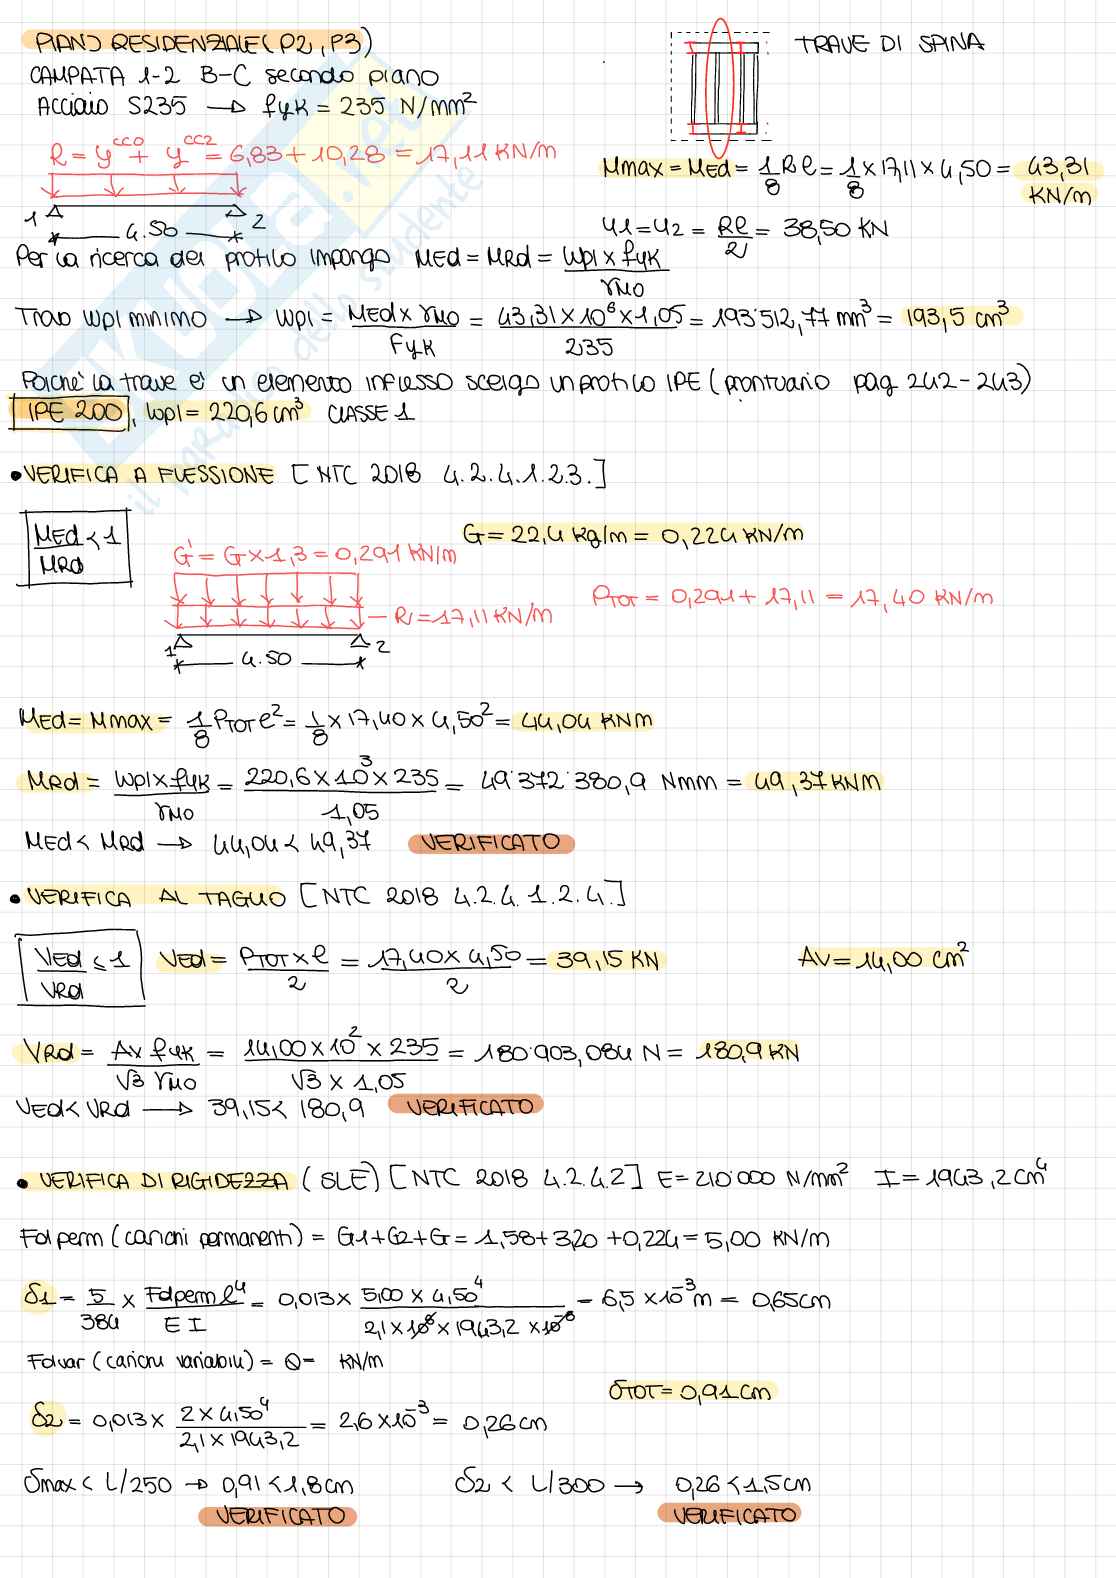 PIANO RESIDENZIALE (P2, P3)
TRAVE DI SPINA
CAMPATA 1-2 B-C secondo piano
Acciaio S235 → fyk = 235 N/mm²
R = y^CC0 + y^CC2 = 6,83 + 10,28 = 17,11 KN/m
1 2
4.50
Mmax = MEd = 1/8 Rl = 1/8 × 17,11 × 4,50 = 43,31 KN/m
u1 = u2 = Rl/2 = 38,50 KN
Per la ricerca del profilo impongo MEd = MRd = Wpl × fyk / γM0
Trovo Wpl minimo → Wpl = MEd × γM0 / Fyk = 43,31 × 10⁶ × 1,05 / 235 = 193'512,77 mm³ = 193,5 cm³
Poichè la trave è un elemento inflesso scelgo un profilo IPE (prontuario pag 242-243)
IPE 200, Wpl = 220,6 cm³ CLASSE 1
• VERIFICA A FLESSIONE [NTC 2018 4.2.4.1.2.3.]
MEd / MRd < 1
G = 22,4 kg/m = 0,224 KN/m
G' = G × 1,3 = 0,291 KN/m
R = 17,11 KN/m
PTOT = 0,291 + 17,11 = 17,40 KN/m
1 2
4.50
MEd = Mmax = 1/8 PTOT l² = 1/8 × 17,40 × 4,50² = 44,04 KNm
MRd = Wpl × fyk / γM0 = 220,6 × 10³ × 235 / 1,05 = 49'372'380,9 Nmm = 49,37 KNm
MEd < MRd → 44,04 < 49,37 VERIFICATO
• VERIFICA AL TAGLIO [NTC 2018 4.2.4.1.2.4.]
VEd / VRd ≤ 1 VEd = PTOT × l / 2 = 17,40 × 4,50 / 2 = 39,15 KN AV = 14,00 cm²
VRd = Av fyk / √3 γM0 = 14,00 × 10² × 235 / √3 × 1,05 = 180'903,084 N = 180,9 KN
VEd < VRd → 39,15 < 180,9 VERIFICATO
• VERIFICA DI RIGIDEZZA (SLE) [NTC 2018 4.2.4.2] E = 210'000 N/mm² I = 1943,2 cm⁴
Fd perm (carichi permanenti) = G1 + G2 + G = 1,58 + 3,20 + 0,224 = 5,00 KN/m
δ1 = 5/384 × Fdperm l⁴ / E I = 0,013 × 5,00 × 4,50⁴ / 2,1 × 10⁸ × 1943,2 × 10⁻⁸ = 6,5 × 10⁻³ m = 0,65 cm
Fdvar (carichi variabili) = Q = KN/m
δTOT = 0,91 cm
δ2 = 0,013 × 2 × 4,50⁴ / 2,1 × 1943,2 = 2,6 × 10⁻³ = 0,26 cm
δmax < L/250 → 0,91 < 1,8 cm δ2 < L/300 → 0,26 < 1,5 cm
VERIFICATO VERIFICATO